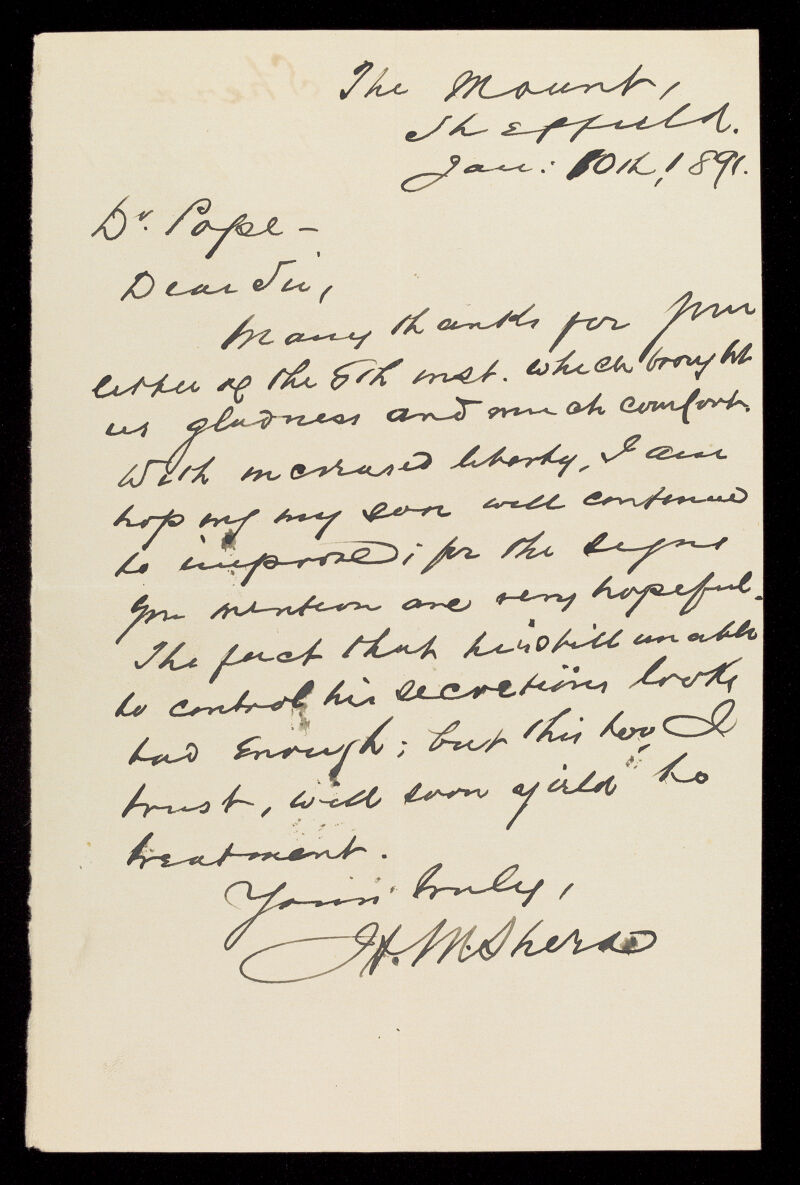 The Mount,
Sheffield.
Jan: 10th, 1891.
Dr. Pope —
Dear Sir,
Many thanks for your
letter of the 8th inst. which brought
us gladness and much comfort.
With increased liberty, I am
hoping my son will continue
to improve; for the signs
you mention are very hopeful.
The fact that he is still unable
to control his secretions looks
bad enough; but this too, I
trust, will soon yield to
treatment.
Yours truly,
H. M. Shera
Shera